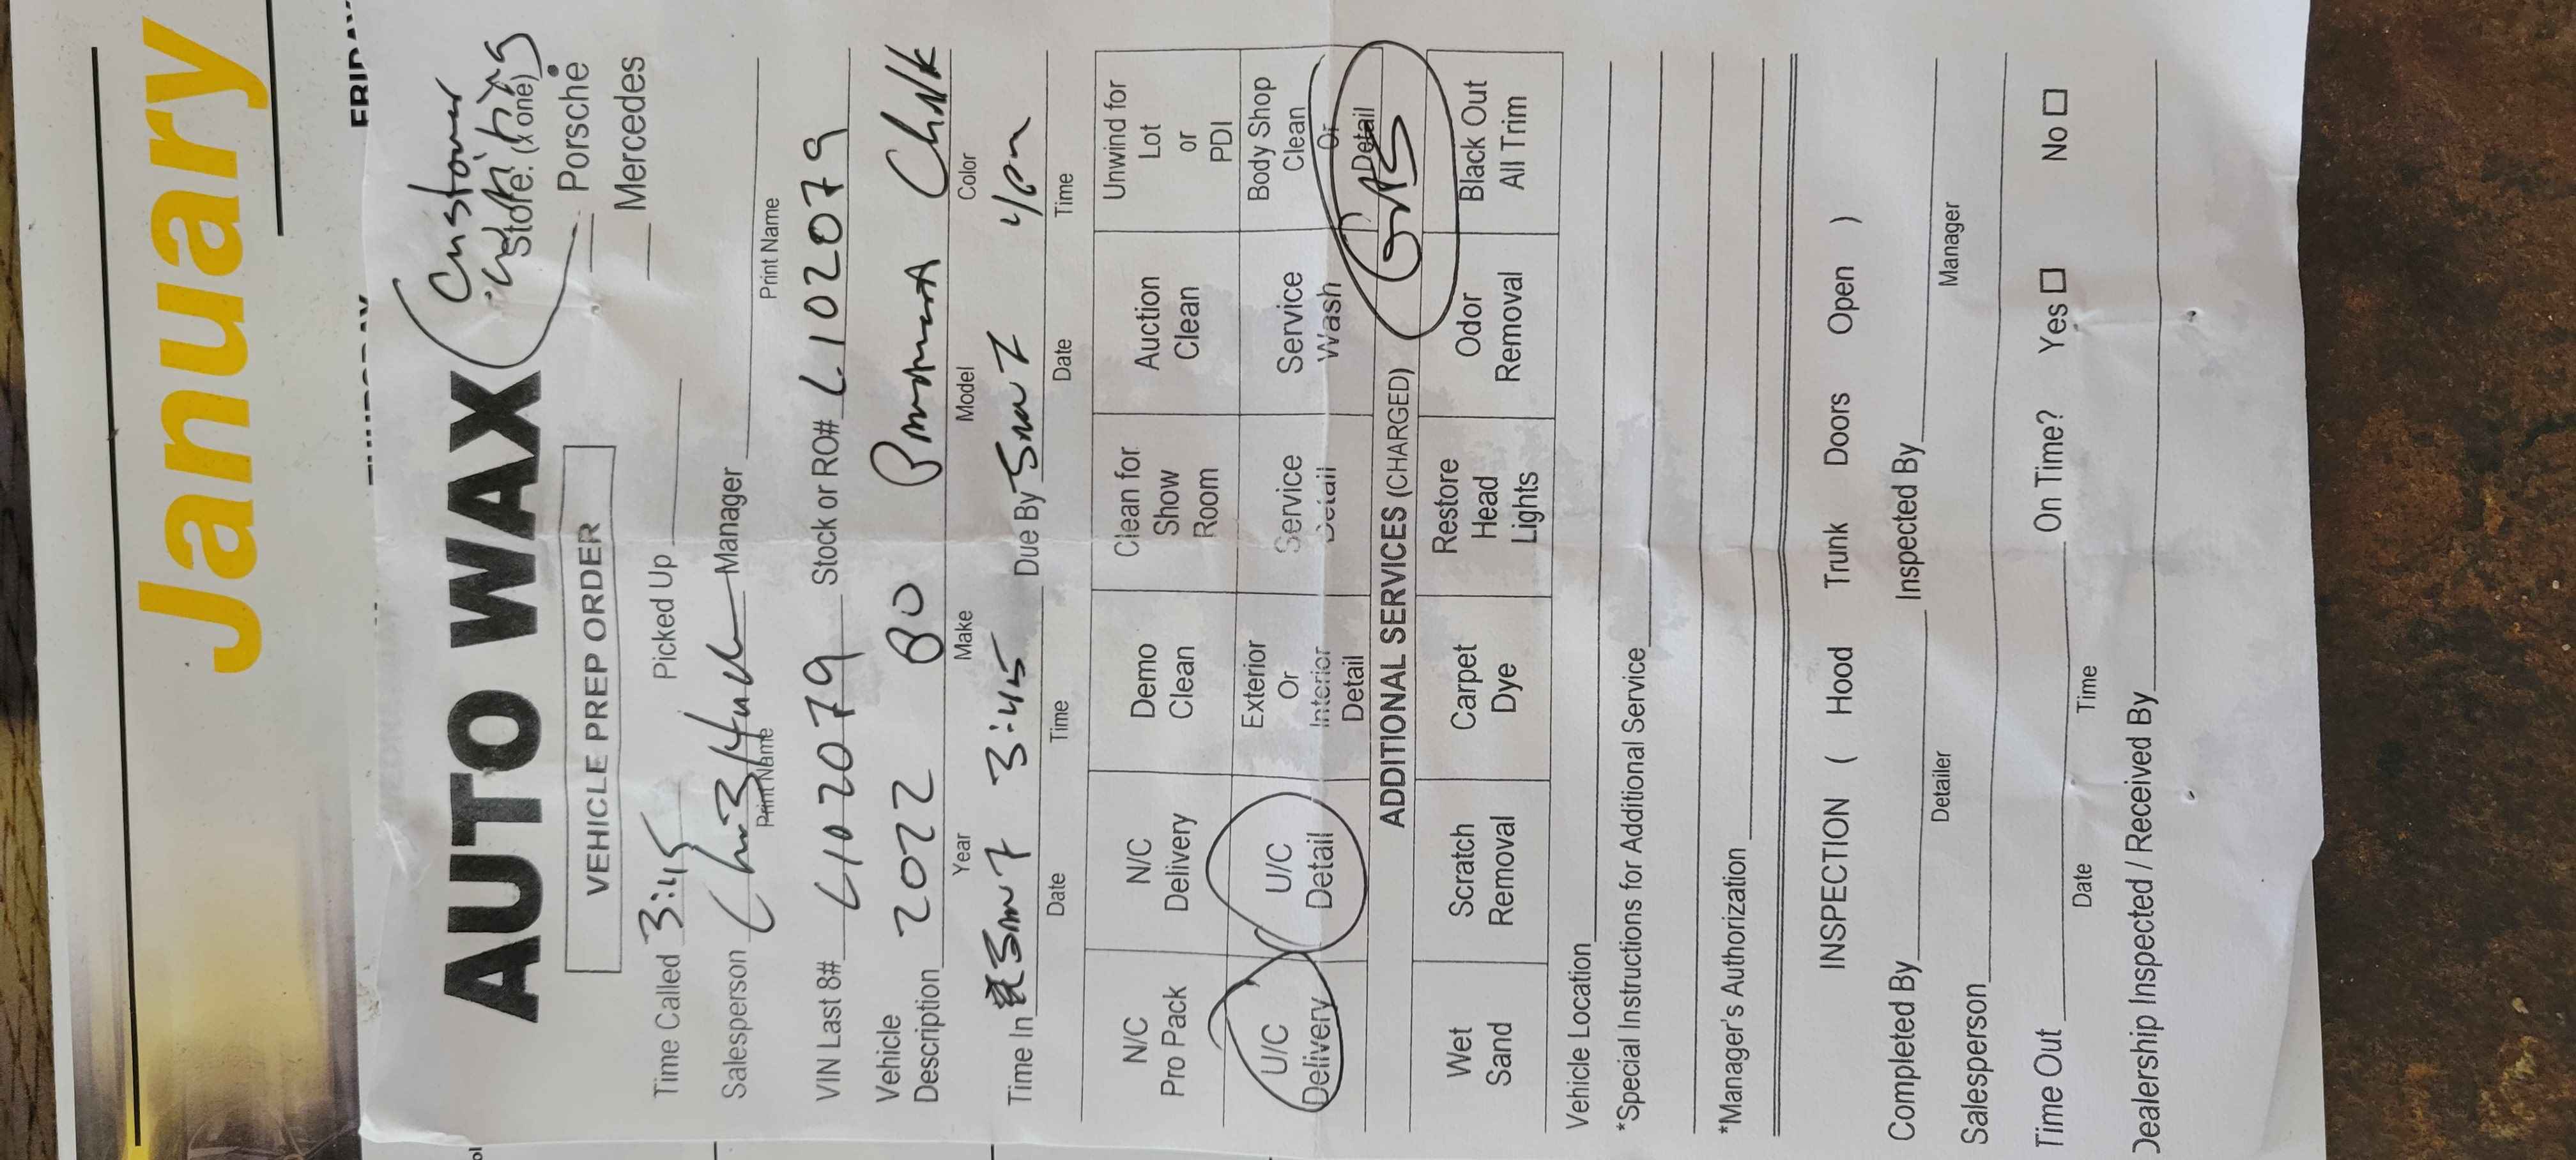 January
FRIDAY
THURSDAY
Customer
AUTO WAX
Store: (x one)
Porsche
Mercedes
VEHICLE PREP ORDER
Time Called 3:45 Picked Up
Salesperson Manager
Print Name Print Name
VIN Last 8# L102079 Stock or RO# L102079
Vehicle
Description 2022 Chalk
Year Make Model Color
Time In 3:45 Due By
Date Time Date Time
N/C Pro Pack
N/C Delivery
Demo Clean
Clean for Show Room
Auction Clean
Unwind for Lot or PDI
U/C Delivery
U/C Detail
Exterior Or Interior Detail
Service Detail
Service Wash
Body Shop Clean Or Detail
GAS
ADDITIONAL SERVICES (CHARGED)
Wet Sand
Scratch Removal
Carpet Dye
Restore Head Lights
Odor Removal
Black Out All Trim
Vehicle Location
*Special Instructions for Additional Service
*Manager's Authorization
INSPECTION ( Hood Trunk Doors Open )
Completed By Inspected By
Detailer Manager
Salesperson
Time Out On Time? Yes No
Date Time
Dealership Inspected / Received By